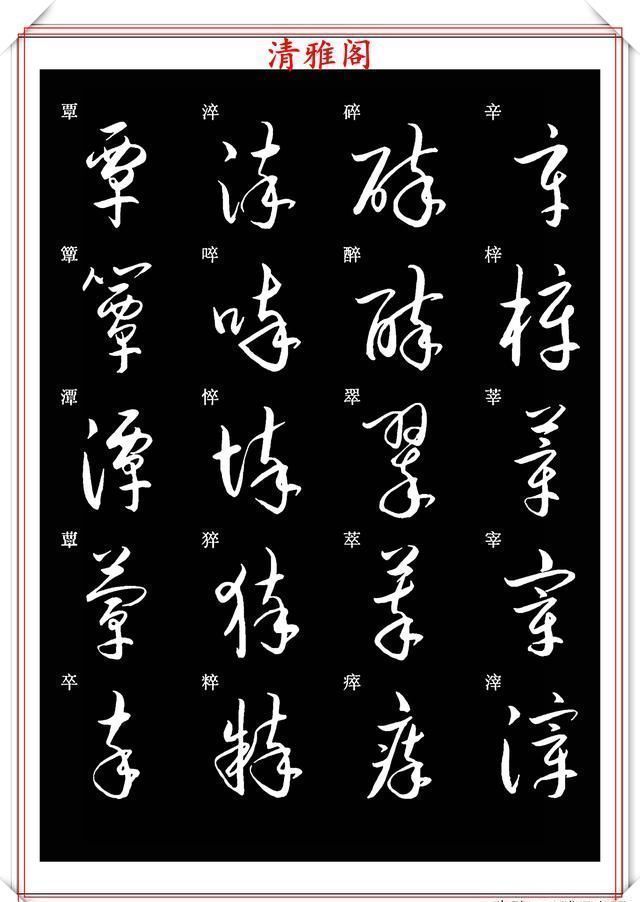 清雅阁
覃 覃
簟 簟
潭 潭
蕈 蕈
卒 卒
淬 淬
啐 啐
悴 悴
猝 猝
粹 粹
碎 碎
醉 醉
翠 翠
萃 萃
瘁 瘁
辛 辛
梓 梓
莘 莘
宰 宰
滓 滓